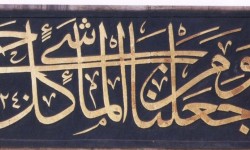 وجعلنا من الماء كل شيء